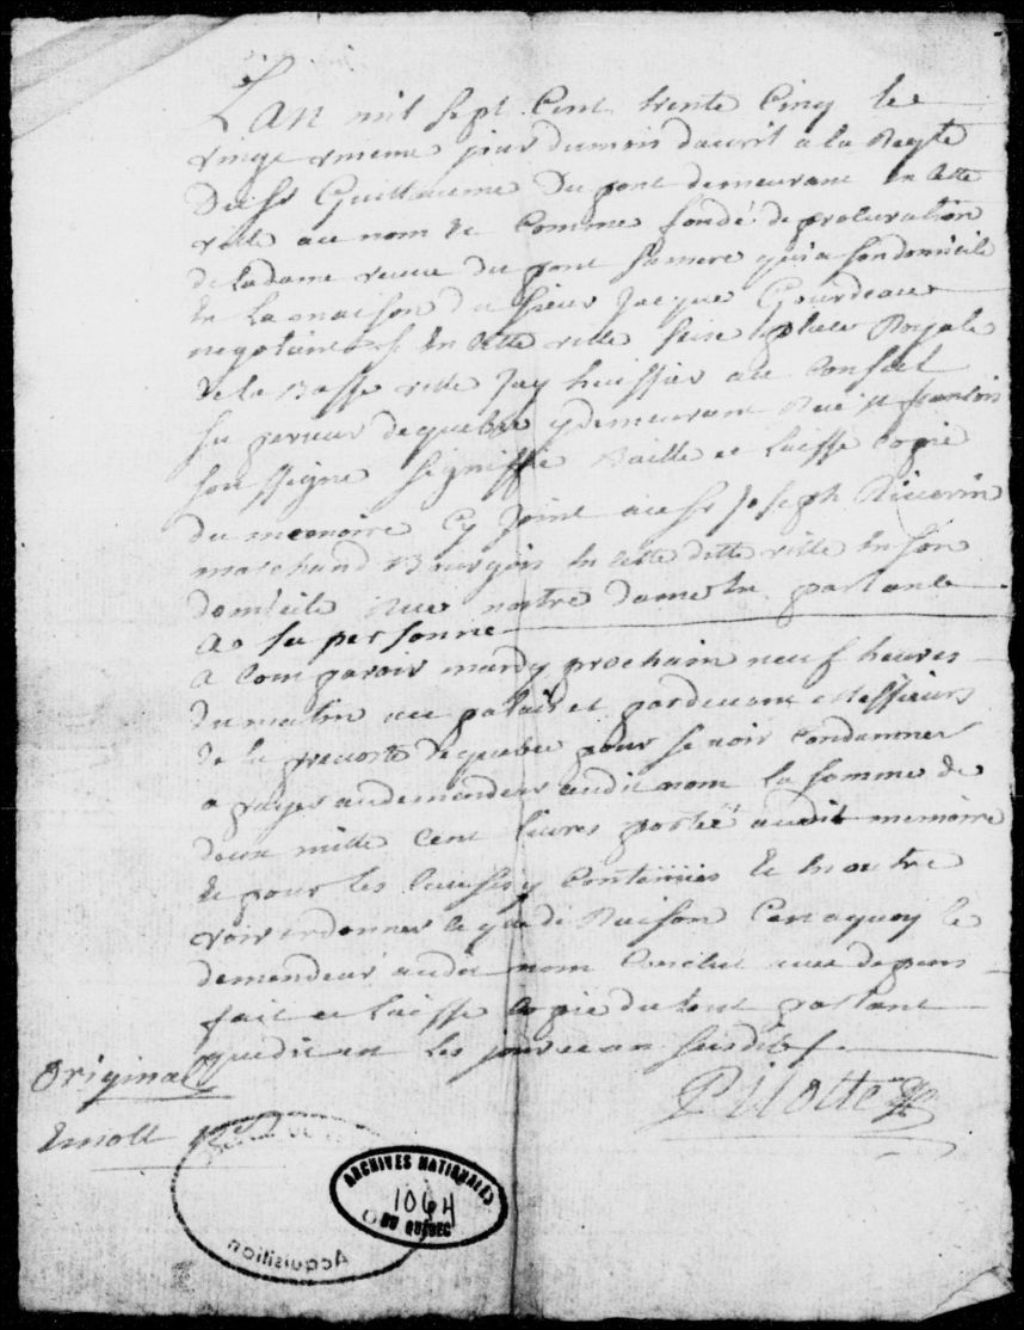 L'an mil sept Cent trente Cinq le
vingt vnieme jour du mois davril a la Reqte
du sr Guillaume Du pont demeurant En Cette
ville au nom Et Comme fondé de procuration
de la dame veuve du pont sa mere qui a son domicile
En La maison du sieur Jacque Gourdeau
negotiant En Cette ville size place Royale
de la Basse ville Jay huissier au Conseil
superieur de quebec y demeurant Rue st francois
soussigne signiffié Baille et laisse Copie
du memoire Cy Joint au sr Joseph Riverin
marchand Bourgois En Cette ditte ville En son
domicile Rue nostre dame En parlant
a sa personne
a Comparoir mardy prochain neuf heures
du matin au palais et pardevant messieurs
de la prevosté de quebec pour se voir Condamner
a payer au demandeur audit nom la somme de
deux mille Cent livres porteé audit memoire
Et pour les Causes y Contenües Et En outre
voir ordonner Ce que de Raison Cen a quoy le
demendeur audit nom Conclut avec depens
fait et laisse Copie du tout parlant
que dit est les jour et an susdits
Original
Pilotte
ARCHIVES NATIONALES
1064
DU QUÉBEC
Acquisition